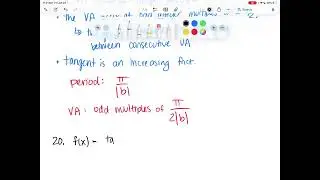 the VA
multiples
2,
to
between consecutive VA
• tangent is an increasing fnct.
period: π/|b|
VA: odd multiples of π/2|b|
20. f(x) = ta